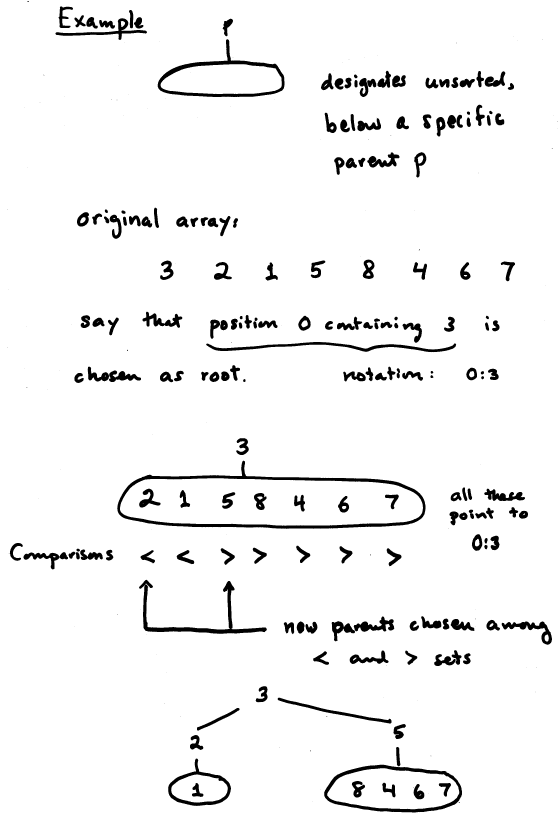 Example
P
designates unsorted,
below a specific
parent p
original array:
3 2 1 5 8 4 6 7
say that position 0 containing 3 is
chosen as root. notation: 0:3
3
2 1 5 8 4 6 7
all these
point to
0:3
Comparisons < < > > > > >
new parents chosen among
< and > sets
3
2 5
1 8 4 6 7